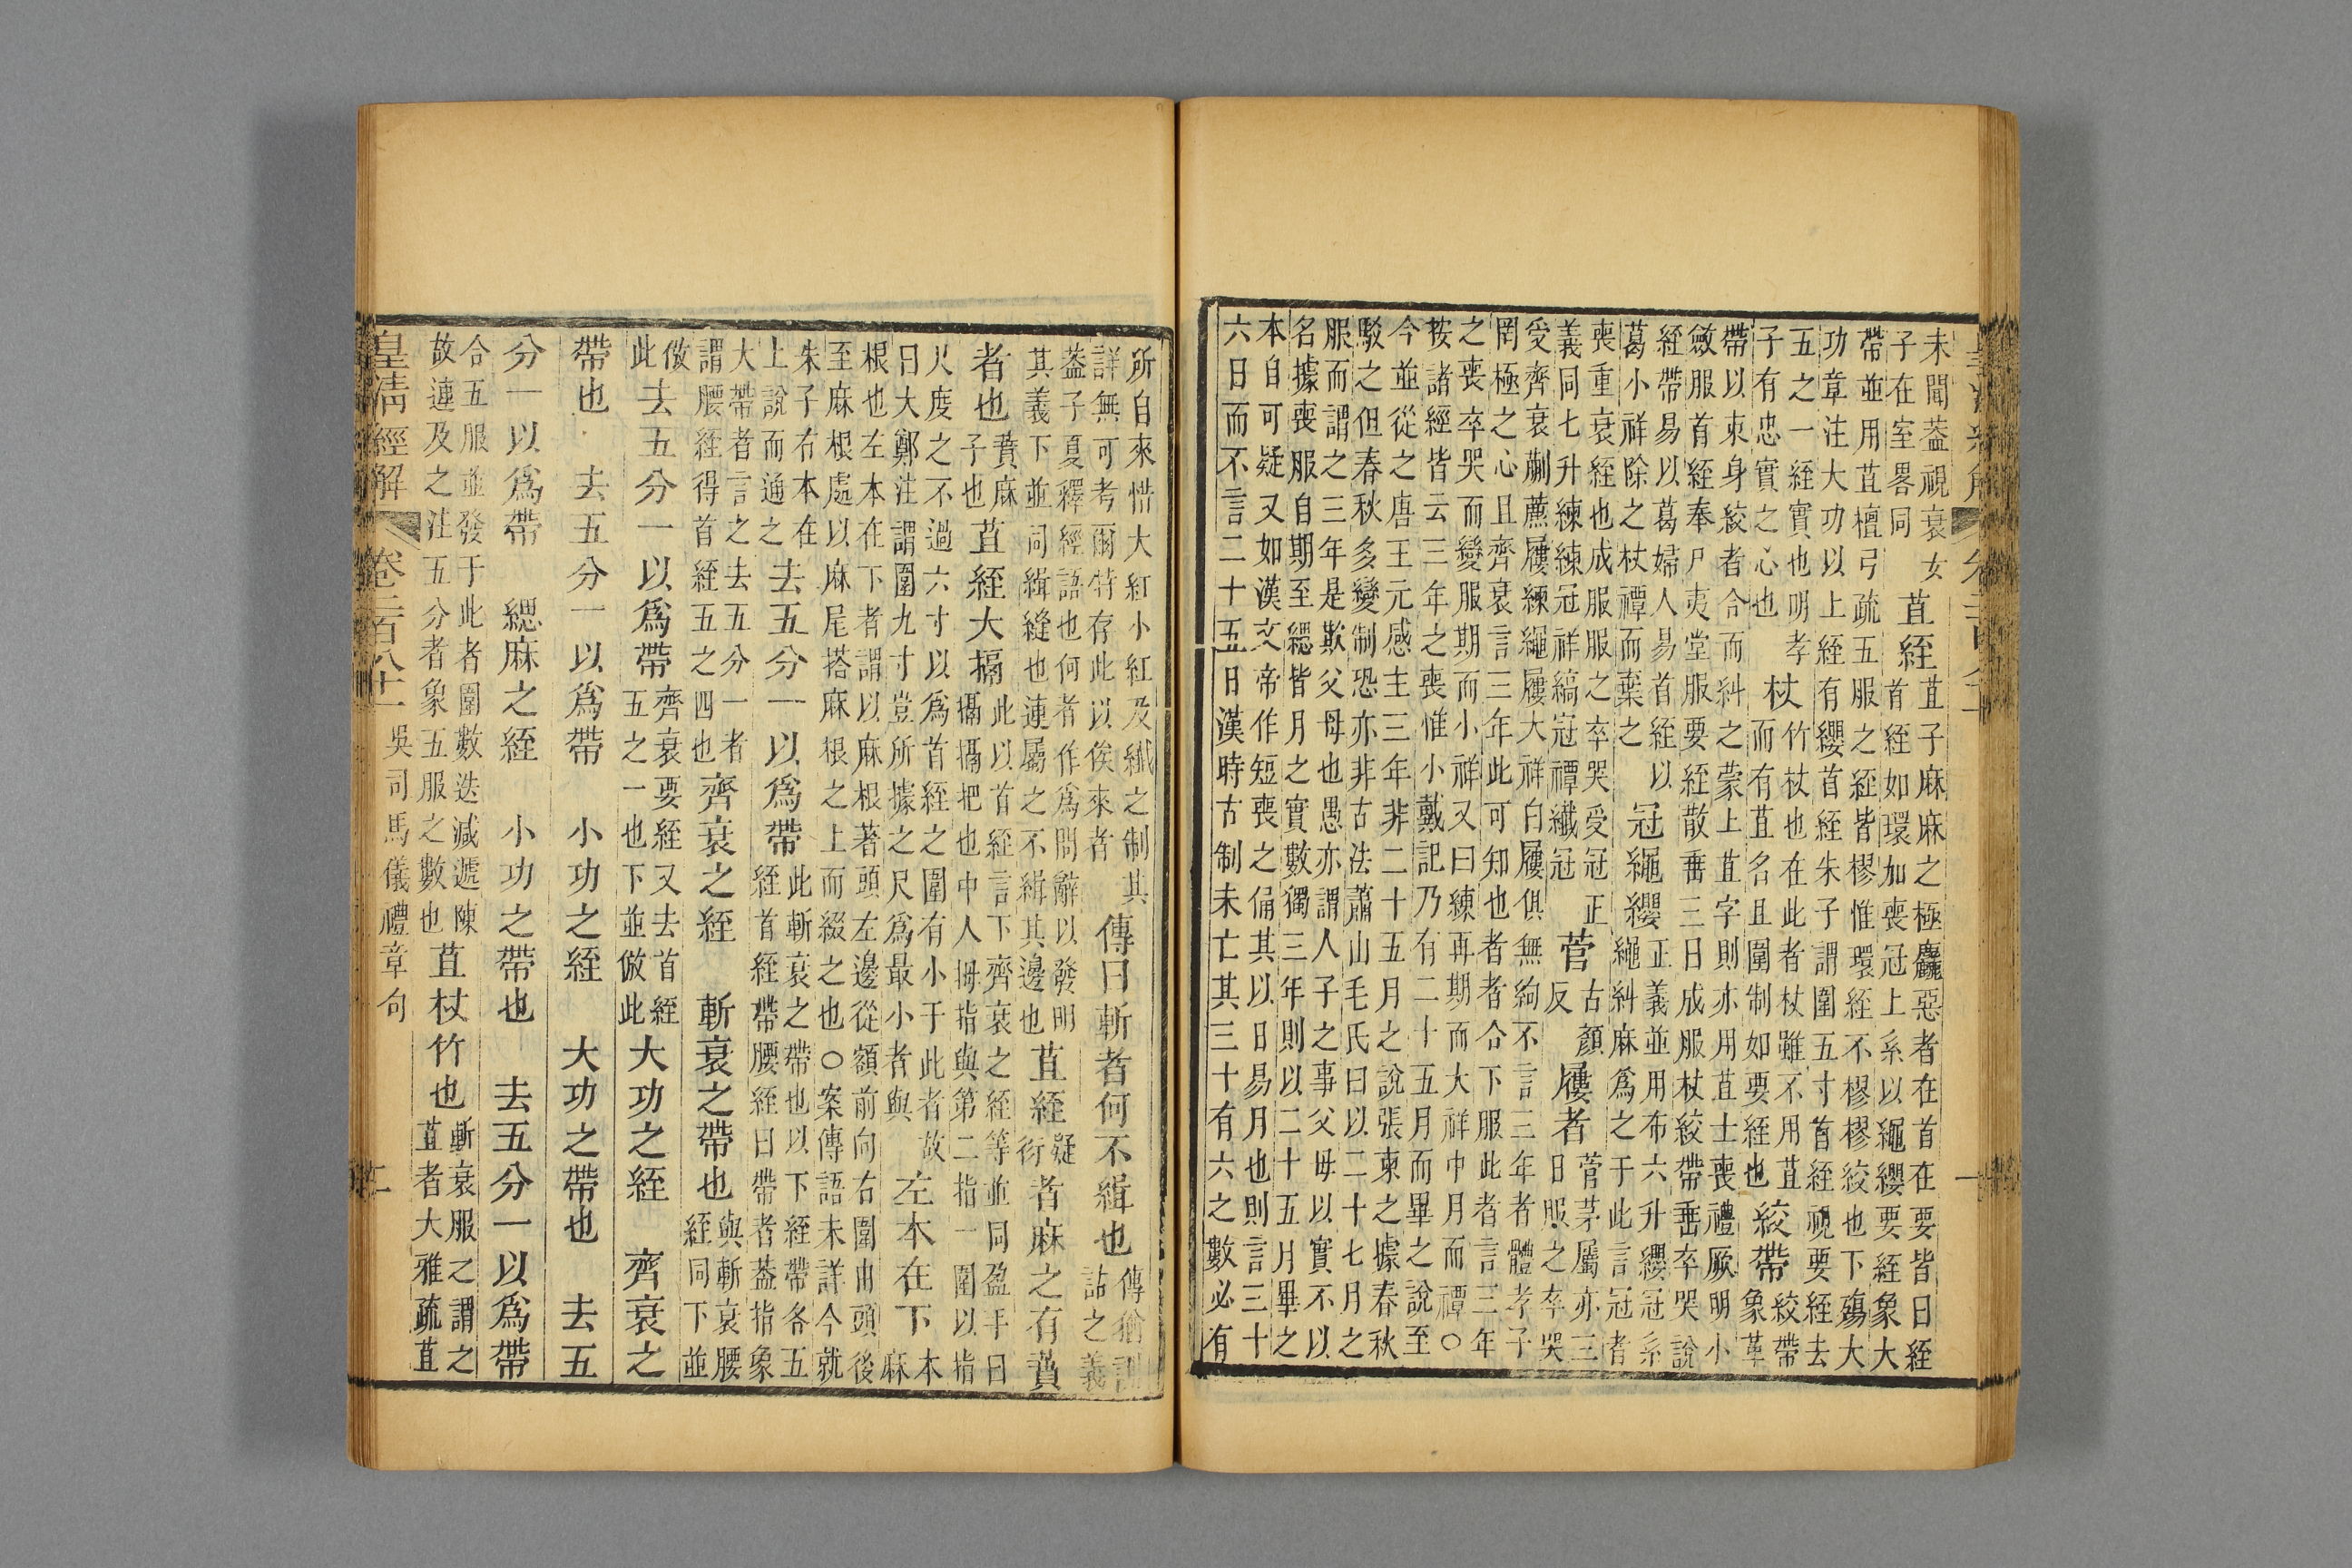 未聞葢視衰女
子在室畧同
苴絰
苴子麻麻之極麤惡者在首在要皆曰絰
首絰如環加喪冠上系以繩纓要絰象大
帶並用苴檀弓疏五服之絰皆樛惟環絰不樛樛絞也下殤大
功章注大功以上絰有纓首絰朱子謂圍五寸首絰視要絰去
五之一絰實也明孝
子有忠實之心也
杖
竹杖也在此者杖雖不用苴
而有苴名且圍制如要絰也
絞帶
絞帶
象革
帶以束身絞者合而糾之蒙上苴字則亦用苴士喪禮厥明小
斂服首絰奉尸夷堂服要絰散垂三日成服杖絞帶垂卒哭說
絰帶易以葛婦人易首絰以
葛小祥除之杖禫而葉之
冠繩纓
正義並用布六升纓冠系
繩糾麻爲之于此言冠者
喪重衰絰也成服服之卒哭受冠正
義同七升練練冠祥縞冠禫纖冠
菅
古顏
反
屨者
菅茅屬亦三
日服之卒哭
受齊衰蒯藨屨練繩屨大祥白屨俱無絇不言三年者體孝子
罔極之心且齊衰言三年此可知也者者合下服此者言三年
之喪卒哭而變服期而小祥又曰練再期而大祥中月而禫○
按諸經皆云三年之喪惟小戴記乃有二十五月而畢之說至
今並從之唐王元感主三年非二十五月之說張柬之據春秋
駁之但春秋多變制恐亦非古法蕭山毛氏曰以二十七月之
服而謂之三年是欺父母也愚亦謂人子之事父母以實不以
名據喪服自期至緦皆月之實數獨三年則以二十五月畢之
本自可疑又如漢文帝作短喪之俑其以日易月也則言三十
六日而不言二十五日漢時古制未亡其三十有六之數必有
所自來惜大紅小紅及纖之制其
詳無可考爾特存此以俟來者
傳曰斬者何不緝也
傳猶訓
詁之義
葢子夏釋經語也何者作爲問辭以發明
其義下並同緝縫也連屬之不緝其邊也
苴絰
疑
衍
者麻之有蕡
者也
蕡麻
子也
苴絰大搹
此以首絰言下齊衰之絰等並同盈手曰
搹搹把也中人拇指與第二指一圍以指
尺度之不過六寸以爲首絰之圍有小于此者故
曰大鄭注謂圍九寸豈所據之尺爲最小者與
左本在下
本
麻
根也左本在下者謂以麻根著頭左邊從額前向右圍由頭後
至麻根處以麻尾搭麻根之上而綴之也○案傳語未詳今就
朱子右本在
上說而通之
去五分一以爲帶
此斬衰之帶也以下絰帶各五
絰首絰帶腰絰曰帶者葢指象
大帶者言之去五分一者
謂腰絰得首絰五之四也
齊衰之絰
斬衰之帶也
與斬衰腰
絰同下並
倣
此
去五分一以爲帶
齊衰要絰又去首絰
五之一也下並倣此
大功之絰
齊衰之
帶也
去五分一以爲帶
小功之絰
大功之帶也
去五
分一以爲帶
緦麻之絰
小功之帶也
去五分一以爲帶
合五服並發于此者圍數迭減遞陳
故連及之注五分者象五服之數也
苴杖竹也
斬衰服之謂之
苴者大雅疏苴
皇淸經解
卷二百八十一
吳司馬儀禮章句
二